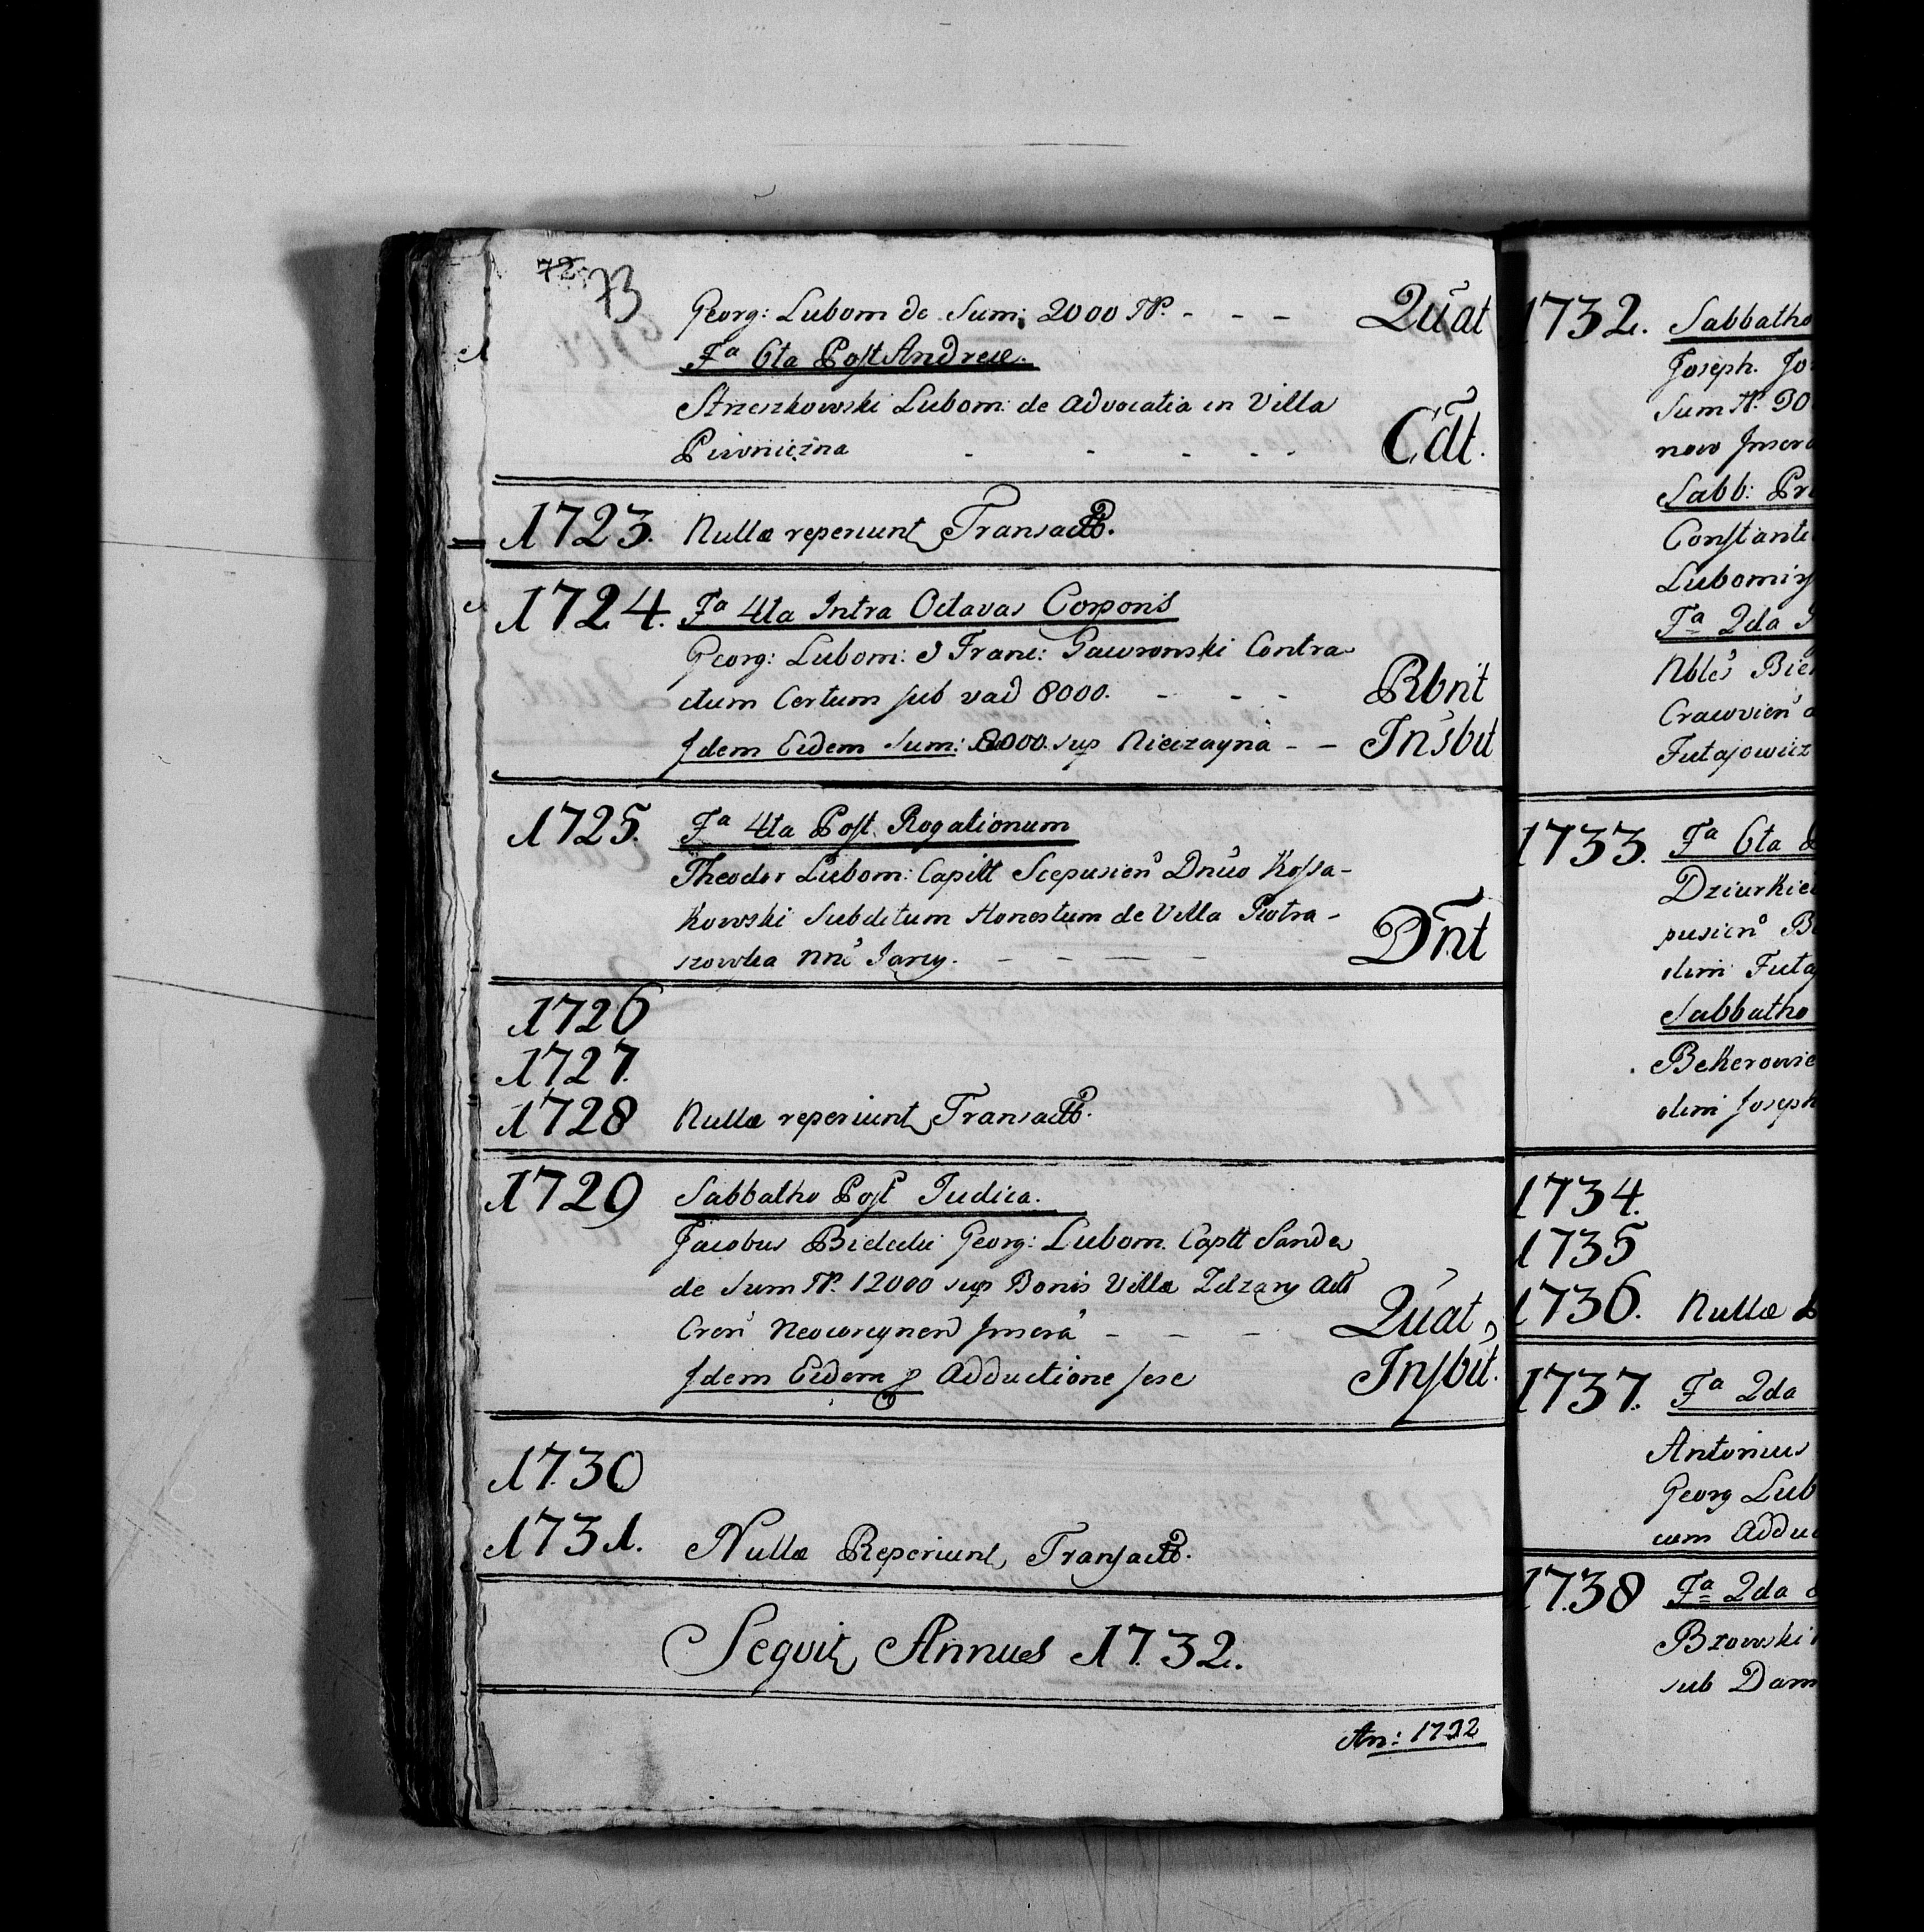 72. 73
Georg: Lubom de Sum: 2000 - - - Quat
Fa 6ta Post Andreæ.
Strzeszkowski Lubom: de Advocatia in Villa
Piwniczna - - - - - Cdt.
1723. Nullæ reperiunt Transact.
1724. Fa 4ta Intra Octavas Corporis
Georg: Lubom: & Franc: Gawronski Contra
ctum Certum sub vad 8000. - - - Rbnt
Idem Eidem Sum: 8000. sup Nieczayna - - Insbit
1725. Fa 4ta Post Rogationum
Theodor Lubom: Capitt Scepusien Dnuo Kossa-
kowski Subditum Honestum de Villa Piotra-
szowka nne Jarzy. - - - - - Dnt
1726
1727.
1728 Nullæ reperiunt Transact.
1729 Sabbatho Post Judica.
Jacobus Georg: Lubom. Captt Sande
de Sum 12000 sup Bonis Villæ Zdzary Act
Cren Inscra - - - Quat,
Idem Eidem p Adductione sese Insbit.
1730
1731. Nullæ Reperiunt Transact.
Sequit Annus 1732.
An: 1732
1732. Sabbatho
Joseph. Jo
Sum 30
now Inscr
Sabb: Pr
Constanti
Lubomirs
Fa 2da
Nbles Bie
Crawien
Futajowicz
1733. Fa 6ta
Dziurkie
pusien B
olim Futa
Sabbatho
Bekerowic
olim Joseph
1734.
1735
1736. Nullæ
1737. Fa 2da
Antonius
Georg Lub
cum Adduc
1738 Fa 2da
Bzowski
sub Dam